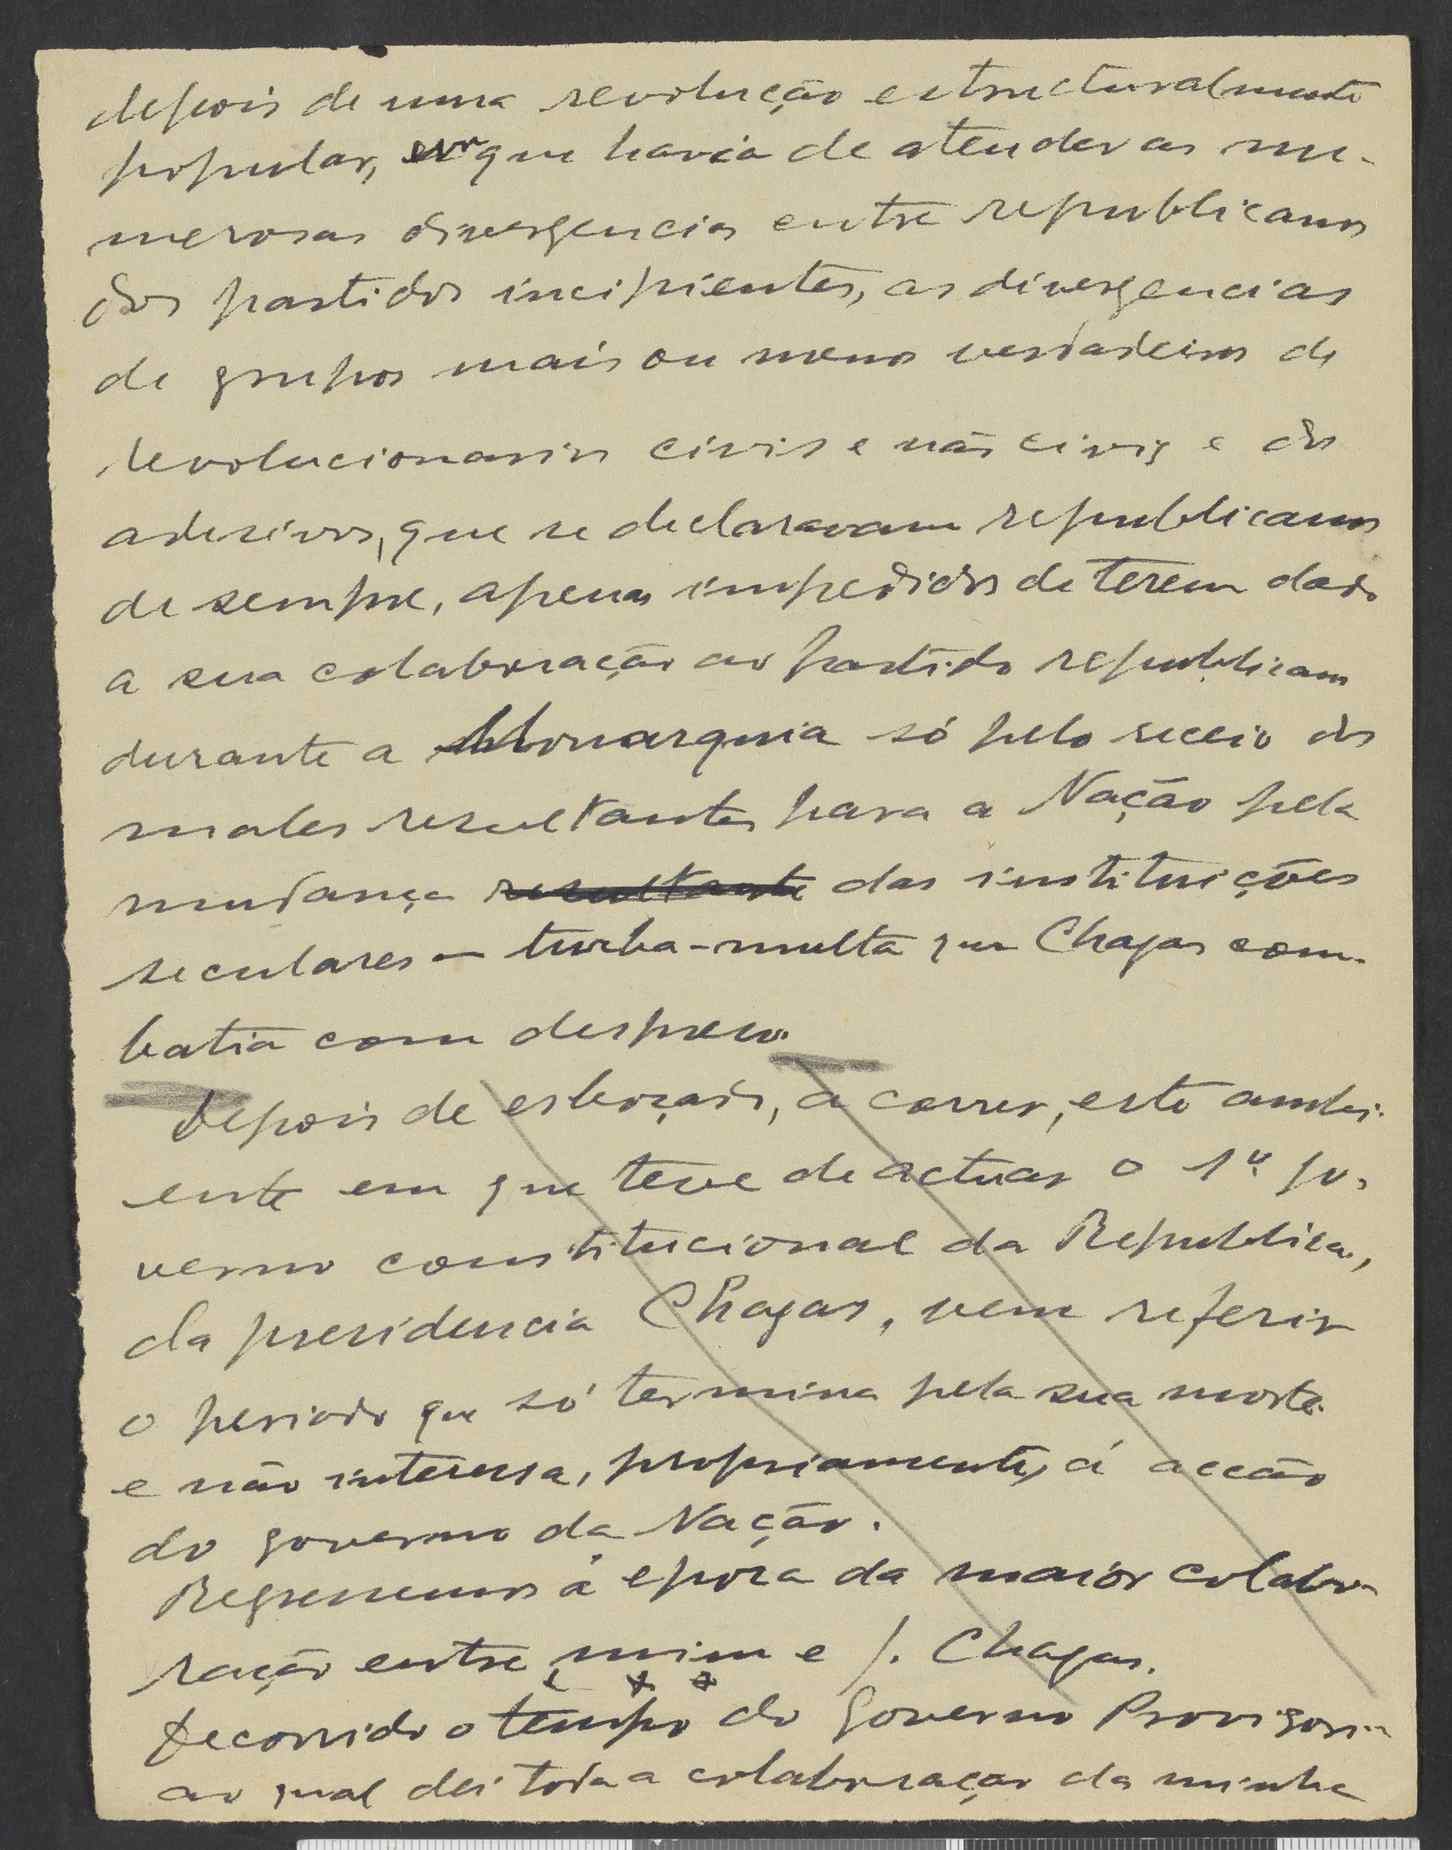 depois de uma revolução estructuralmente
popular, em que havia de atender as nu-
merosas divergencias entre republicanos
dos partidos incipientes, as divergencias
de grupos mais ou menos verdadeiros de
revolucionarios civis e não civis e dos
adesivos, que se declaravam republicanos
de sempre, apenas impedidos de terem dado
a sua colaboração ao partido republicano
durante a Monarquia só pelo receio dos
males resultantes para a Nação pela
mudança resultante das instituições
seculares – turba-multa que Chagas com-
batia com despreso.
Depois de esboçado, a correr, este ambi-
ente em que teve de actuar o 1º go-
verno constitucional da Republica,
da presidencia Chagas, vem referir
o periodo que só termina pela sua morte
e não interessa, propriamente, á acção
do governo da Nação.
Regressemos á epoca da maior colabo-
ração entre mim e J. Chagas.
Decorrido o tempo do Governo Provisorio
ao qual dei toda a colaboração da minha